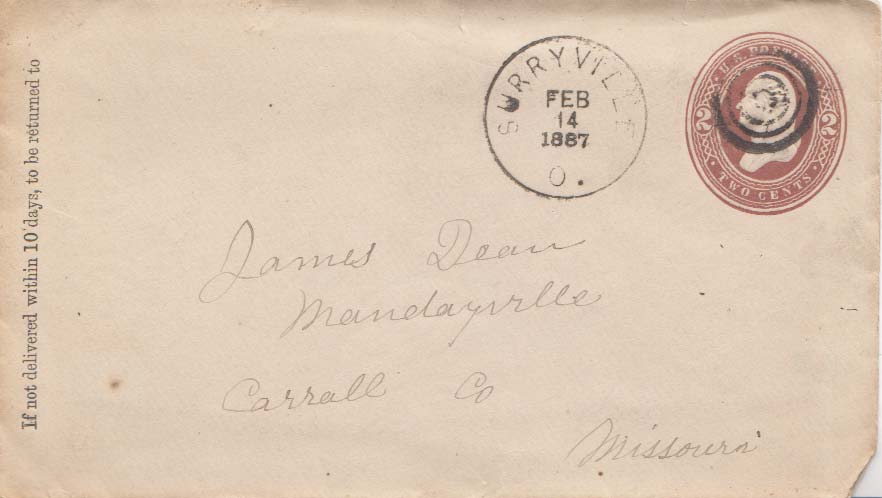 If not delivered within 10 days, to be returned to
SURRYVILLE
FEB
14
1887
O.
U.S. POSTAGE
2 2
TWO CENTS
James Dean
Mandayville
Carrall Co
Missouri